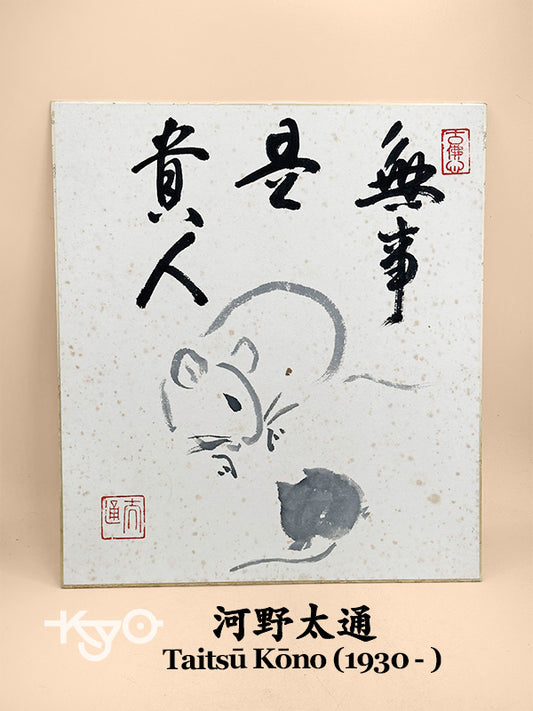 無事
是
貴人
古佛山
太通
Kyo
河野太通
Taitsū Kōno (1930 - )